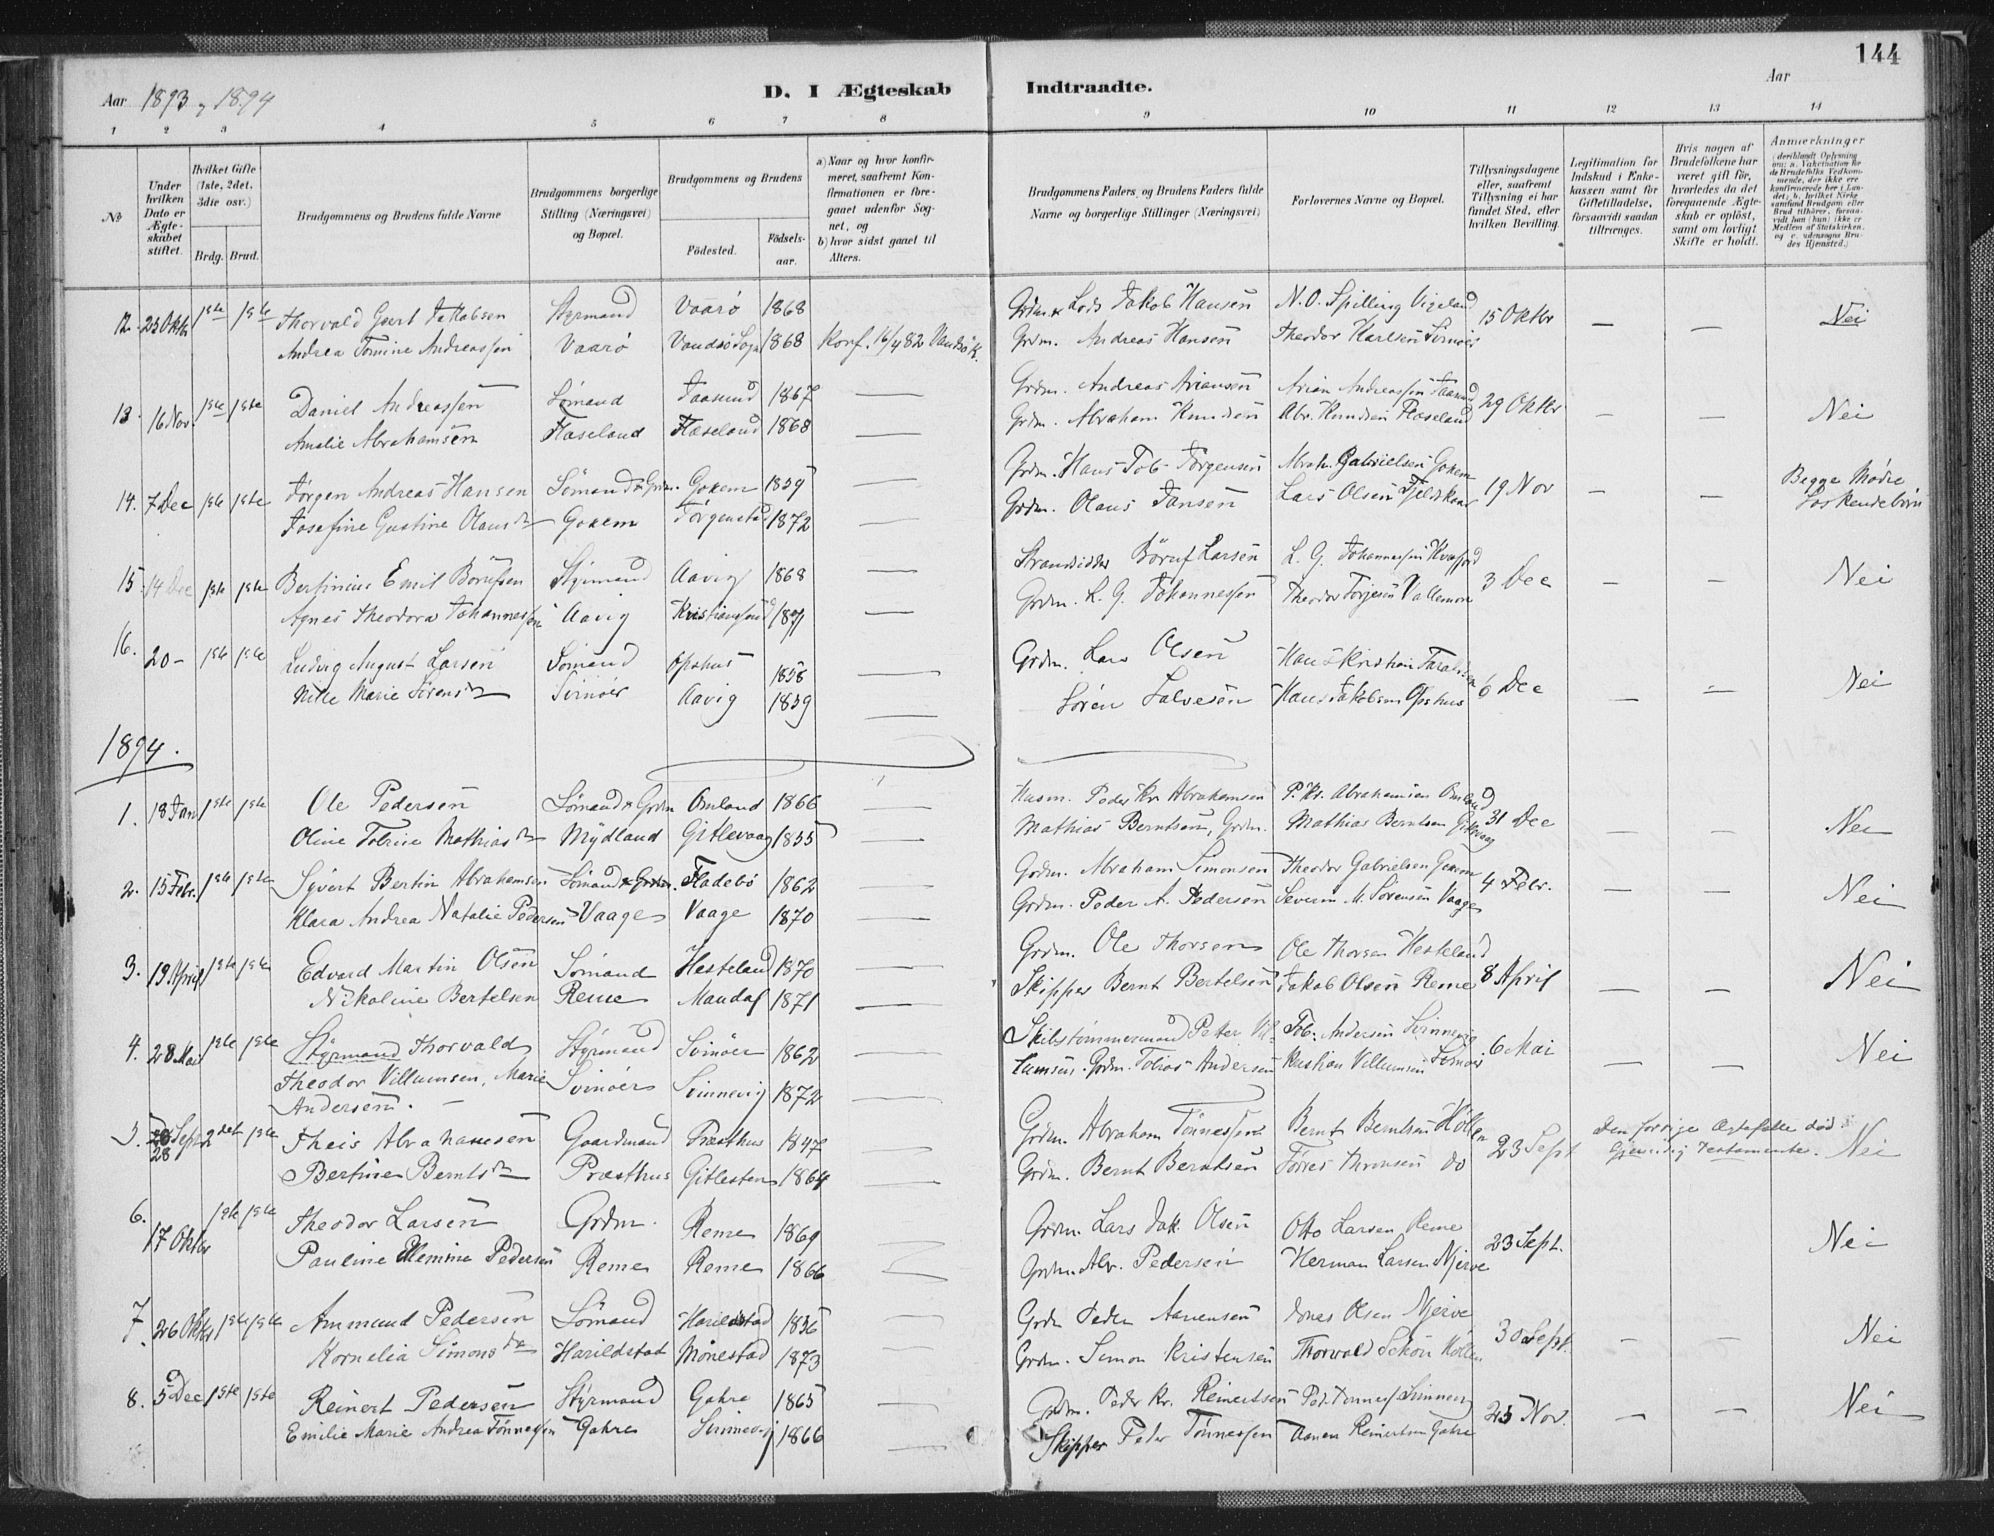 144
Aar 1893 og 1894
D. I Ægteskab Indtraadte.
Aar
1 2 3 4 5 6 7 8 9 10 11 12 13 14
No
Under hvilken Dato er Ægteskabet stiftet.
Hvilket Gifte (1ste, 2det, 3die osv.)
Brdg. Brud.
Brudgommens og Brudens fulde Navne
Brudgommens borgerlige Stilling (Næringsvei) og Bopæl.
Brudgommens og Brudens
Fødested.
Fødselsaar.
a) Naar og hvor konfirmeret, saafremt Konfirmationen er foregaaet udenfor Sognet, og
b) hvor sidst gaaet til Alters.
Brudgommens Faders og Brudens Faders fulde Navne og borgerlige Stillinger (Næringsvei)
Forlovernes Navne og Bopæl.
Tillysningsdagene eller, saafremt Tillysning ei har fundet Sted, efter hvilken Bevilling.
Legitimation for Indskud i Enkekassen samt for Giftetilladelse, forsaavidt saadan tiltrænges.
Hvis nogen af Brudefolkene har været gift før, hvorledes da det foregaaende Ægteskab er opløst, samt om lovligt Skifte er holdt.
Anmærkninger (deriblandt Oplysning om: a. Vaccination for de Brudefolks Vedkommende, der ikke ere konfirmerede her i Landet; b. hvilket Kirkesamfund Brudgom eller Brud tilhører, forsaavidt han (hun) ikke er Medlem af Statskirken, og c. udensogns Brudes Hjemsted.)
12. 23 Oktbr 1ste 1ste Thorvald Geert Jakobsen Styrmand Vaarø 1868 Grdm. & Lods Jakob Hansen N. O. Spilling Vigeland 15 Oktbr — — Nei
Andrea Tomine Andreassen Vaarø Vandsø Sogn 1868 Konf. 16/4 82 Vandsø K. Grdm. Andreas Hansen Theodor Karlsen Svinør
13. 16 Nov. 1ste 1ste Daniel Andreassen Sømand Faasund 1867 — Grdm. Andreas Ariansen Arian Andreassen Faasund 29 Oktbr — — Nei
Amalie Abrahamsen Haseland Haseland 1868 — Grdm. Abraham Knudsen Abr. Knudsen Haseland
14. 7 Dec 1ste 1ste Jørgen Andreas Hansen Sømand & Grdm. Goxem 1859 — Grdm. Hans Tob. Jørgensen Abrah. Gabrielsen Goxem 19 Nov — — Begge Mødre Søskendebørn
Josefine Gustine Olausdr Goxem Jørgenstad 1872 — Grdm. Olaus Jansen Lars Olsen Fjeldskaar
15. 14 Dec 1ste 1ste Bertinius Emil Børufsen Styrmand Aavig 1868 — Strandsidder Børuf Larsen L. G. Johannessen 3 Dec — — Nei
Agnes Theodora Johannessen Aavig Kristianssund 1871 — Grdm. L. G. Johannessen Theodor Torjesen Vallemon
16. 20 — 1ste 1ste Ludvig August Larsen Sømand Ophus 1858 — Grdm. Lars Olsen Hans Kristian Taraldsen 6 Dec — — Nei
Nille Marie Sørensdr Svinør Aavig 1859 — Søren Salvesen Hans Jakobsen Ophus
1894.
1. 18 Jan 1ste 1ste Ole Pedersen Sømand & Grdm Omland 1866 — Husm. Peder Kr. Abrahamsen P. Kr. Abrahamsen Omland 31 Dec — — Nei
Oline Tobine Mathiasdr Mydland Gitlevaag 1855 — Mathias Berntsen, Grdm. Mathias Berntsen Gitlevaag
2. 15 Febr. 1ste 1ste Syvert Bertin Abrahamsen Sømand & Grdm. Fladebø 1862 — Grdm. Abraham Simonsen Theodor Gabrielsen Goxem 4 Febr. — — Nei
Klara Andrea Natalie Pedersen Vaage Vaage 1870 — Grdm. Peder A. Pedersen Severin M. Sørensen Vaage
3. 19. April 1ste 1ste Edvard Martin Olsen Sømand Hesteland 1870 — Grdm. Ole Thorsen Ole Thorsen Hesteland 8 April — — Nei
Nikoline Bertelsen Reme Mandal 1871 — Skipper Bernt Bertelsen Jakob Olsen Reme
4. 28 Mai 1ste 1ste Styrmand Thorvald Styrmand Svinøer 1862 — Skibstømmermand Petter Vil- Tob. Andersen Svinnevig 6 Mai — — Nei
Theodor Villumsen, Marie Svinøer Svinnevig 1872 — lumsen. Grdm. Tobias Andersen Kristian Villumsen
Andersen. —
5. 28 Sept 2det 1ste Theis Abrahamsen Gaardmand Præsthus 1847 — Grdm. Abraham Tønnessen Bernt Berntsen Høllen 23 Sept Den forrige Ægtefælle død. Gjensidig Testamente. Nei
Bertine Berntsdr Præsthus Gitlesten 1864 — Grdm. Bernt Berntsen Tørres Aronsen do
6. 17 Oktbr 1ste 1ste Theodor Larsen Grdm. Reme 1869 — Grdm. Lars Jak. Olsen Otto Larsen Reme 23 Sept. Nei
Pauline Pedersen Reme Reme 1866 — Grdm. Abr. Pedersen Herman Larsen Njerve
7. 26 Oktbr 1ste 1ste Ammund Pedersen Sømand Harildstad 1856 — Grdm Peder Aanensen Jonas Olsen Njerve 30 Sept. — — Nei
Kornelia Simonsdr Harildstad Mønestad 1873 — Grdm. Simon Kristensen Thorvald Schøn Høllen
8. 5 Dec 1ste 1ste Reinert Pedersen Styrmand Gahre 1865 — Grdm. Peder Kr. Reinertsen Ped. Tønness Svinnevig 25 Nov. — — Nei
Emilie Marie Andrea Tønnessen Gahre Svinnevig 1866 — Skipper Peder Tønnessen Aanen Reinertsen Gahre